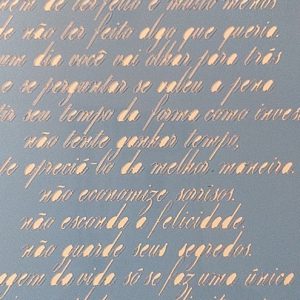 de ter feito e muito menos
não ter feito algo que queria.
um dia você vai olhar para trás
e se perguntar se valeu a pena
seu tempo da forma como
não tente ganhar tempo,
apreciá-la da melhor maneira.
não economize sorrisos.
não esconda a felicidade,
não guarde seus segredos.
da vida só se faz uma única